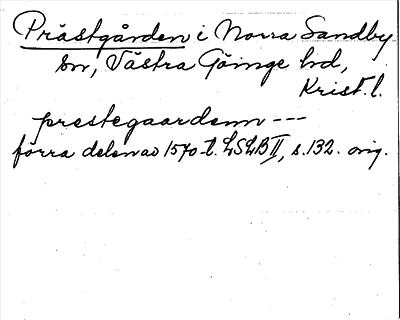 Prästgården i Norra Sandby
sn, Västra Göinge hd,
Krist. l.
prestegaardenn ---
förra delen av 1570-t. LSLB II, s. 132. orig.